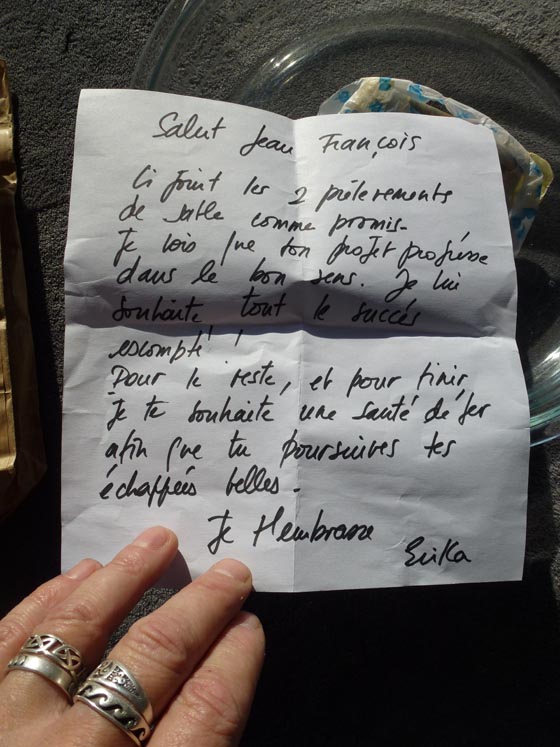 Salut Jean François
Ci joint les 2 prélèvements
de sable comme promis.
Je vois que ton projet progresse
dans le bon sens. Je lui
souhaite tout le succés
escompté !
Pour le reste, et pour finir,
Je te souhaite une santé de fer
afin que tu poursuives tes
échappées belles.
Je t'embrasse
Erika